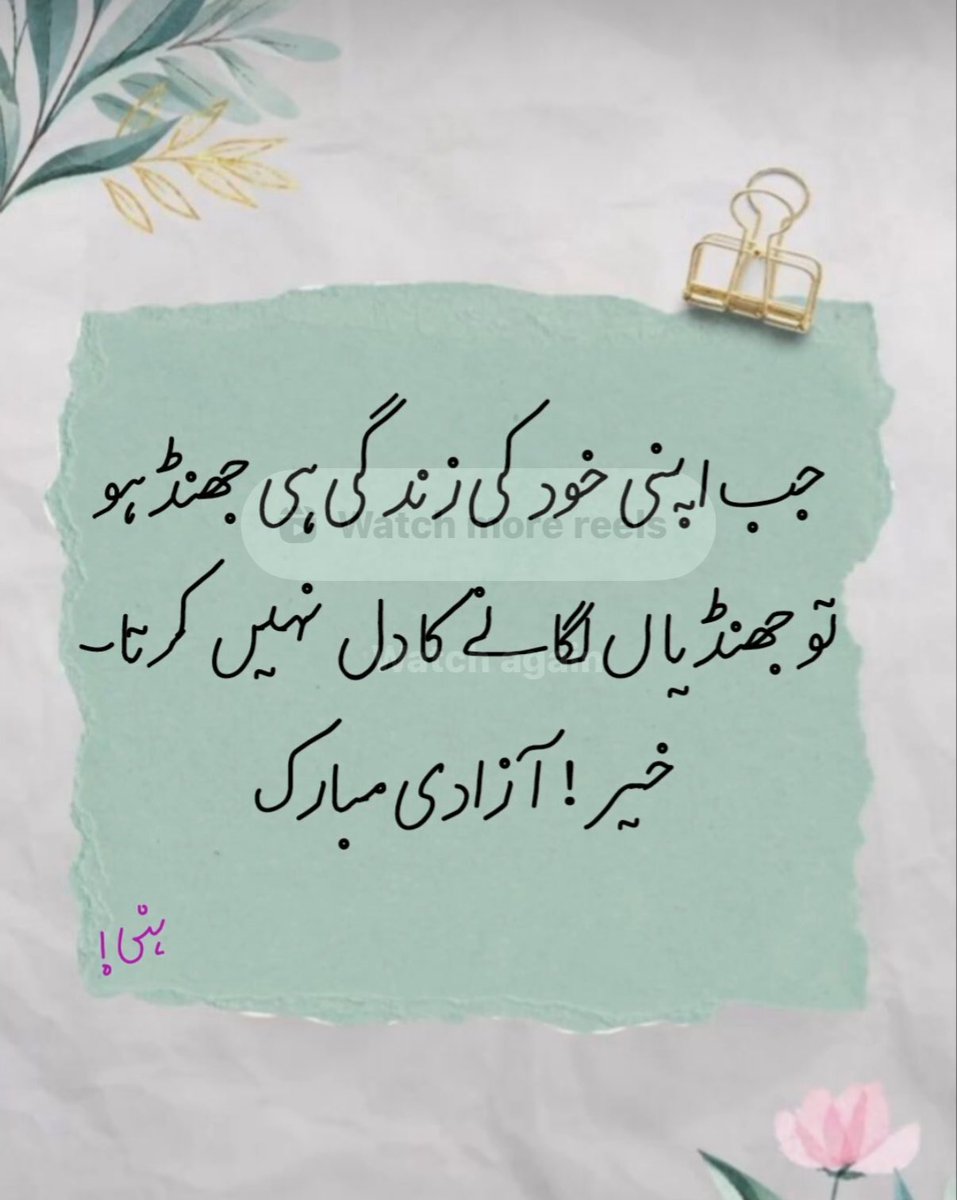 جب اپنی خود کی زندگی ہی جھنڈ ہو
Watch more reels
تو جھنڈیاں لگانے کا دل نہیں کرتا۔
Watch again
خیر ! آزادی مبارک
ہنی!